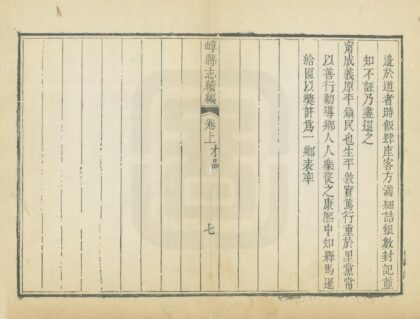 遠於道者時假肆座客方滿細詰銀數封記並
知不誣乃盡還之
甯成義原平鎮民也生平敦實篤行重於里黨嘗
以善行勸導鄉人人樂從之康熙中知縣馬遇
給匾以獎許爲一鄉表率
崞縣志續編
卷上才品
七